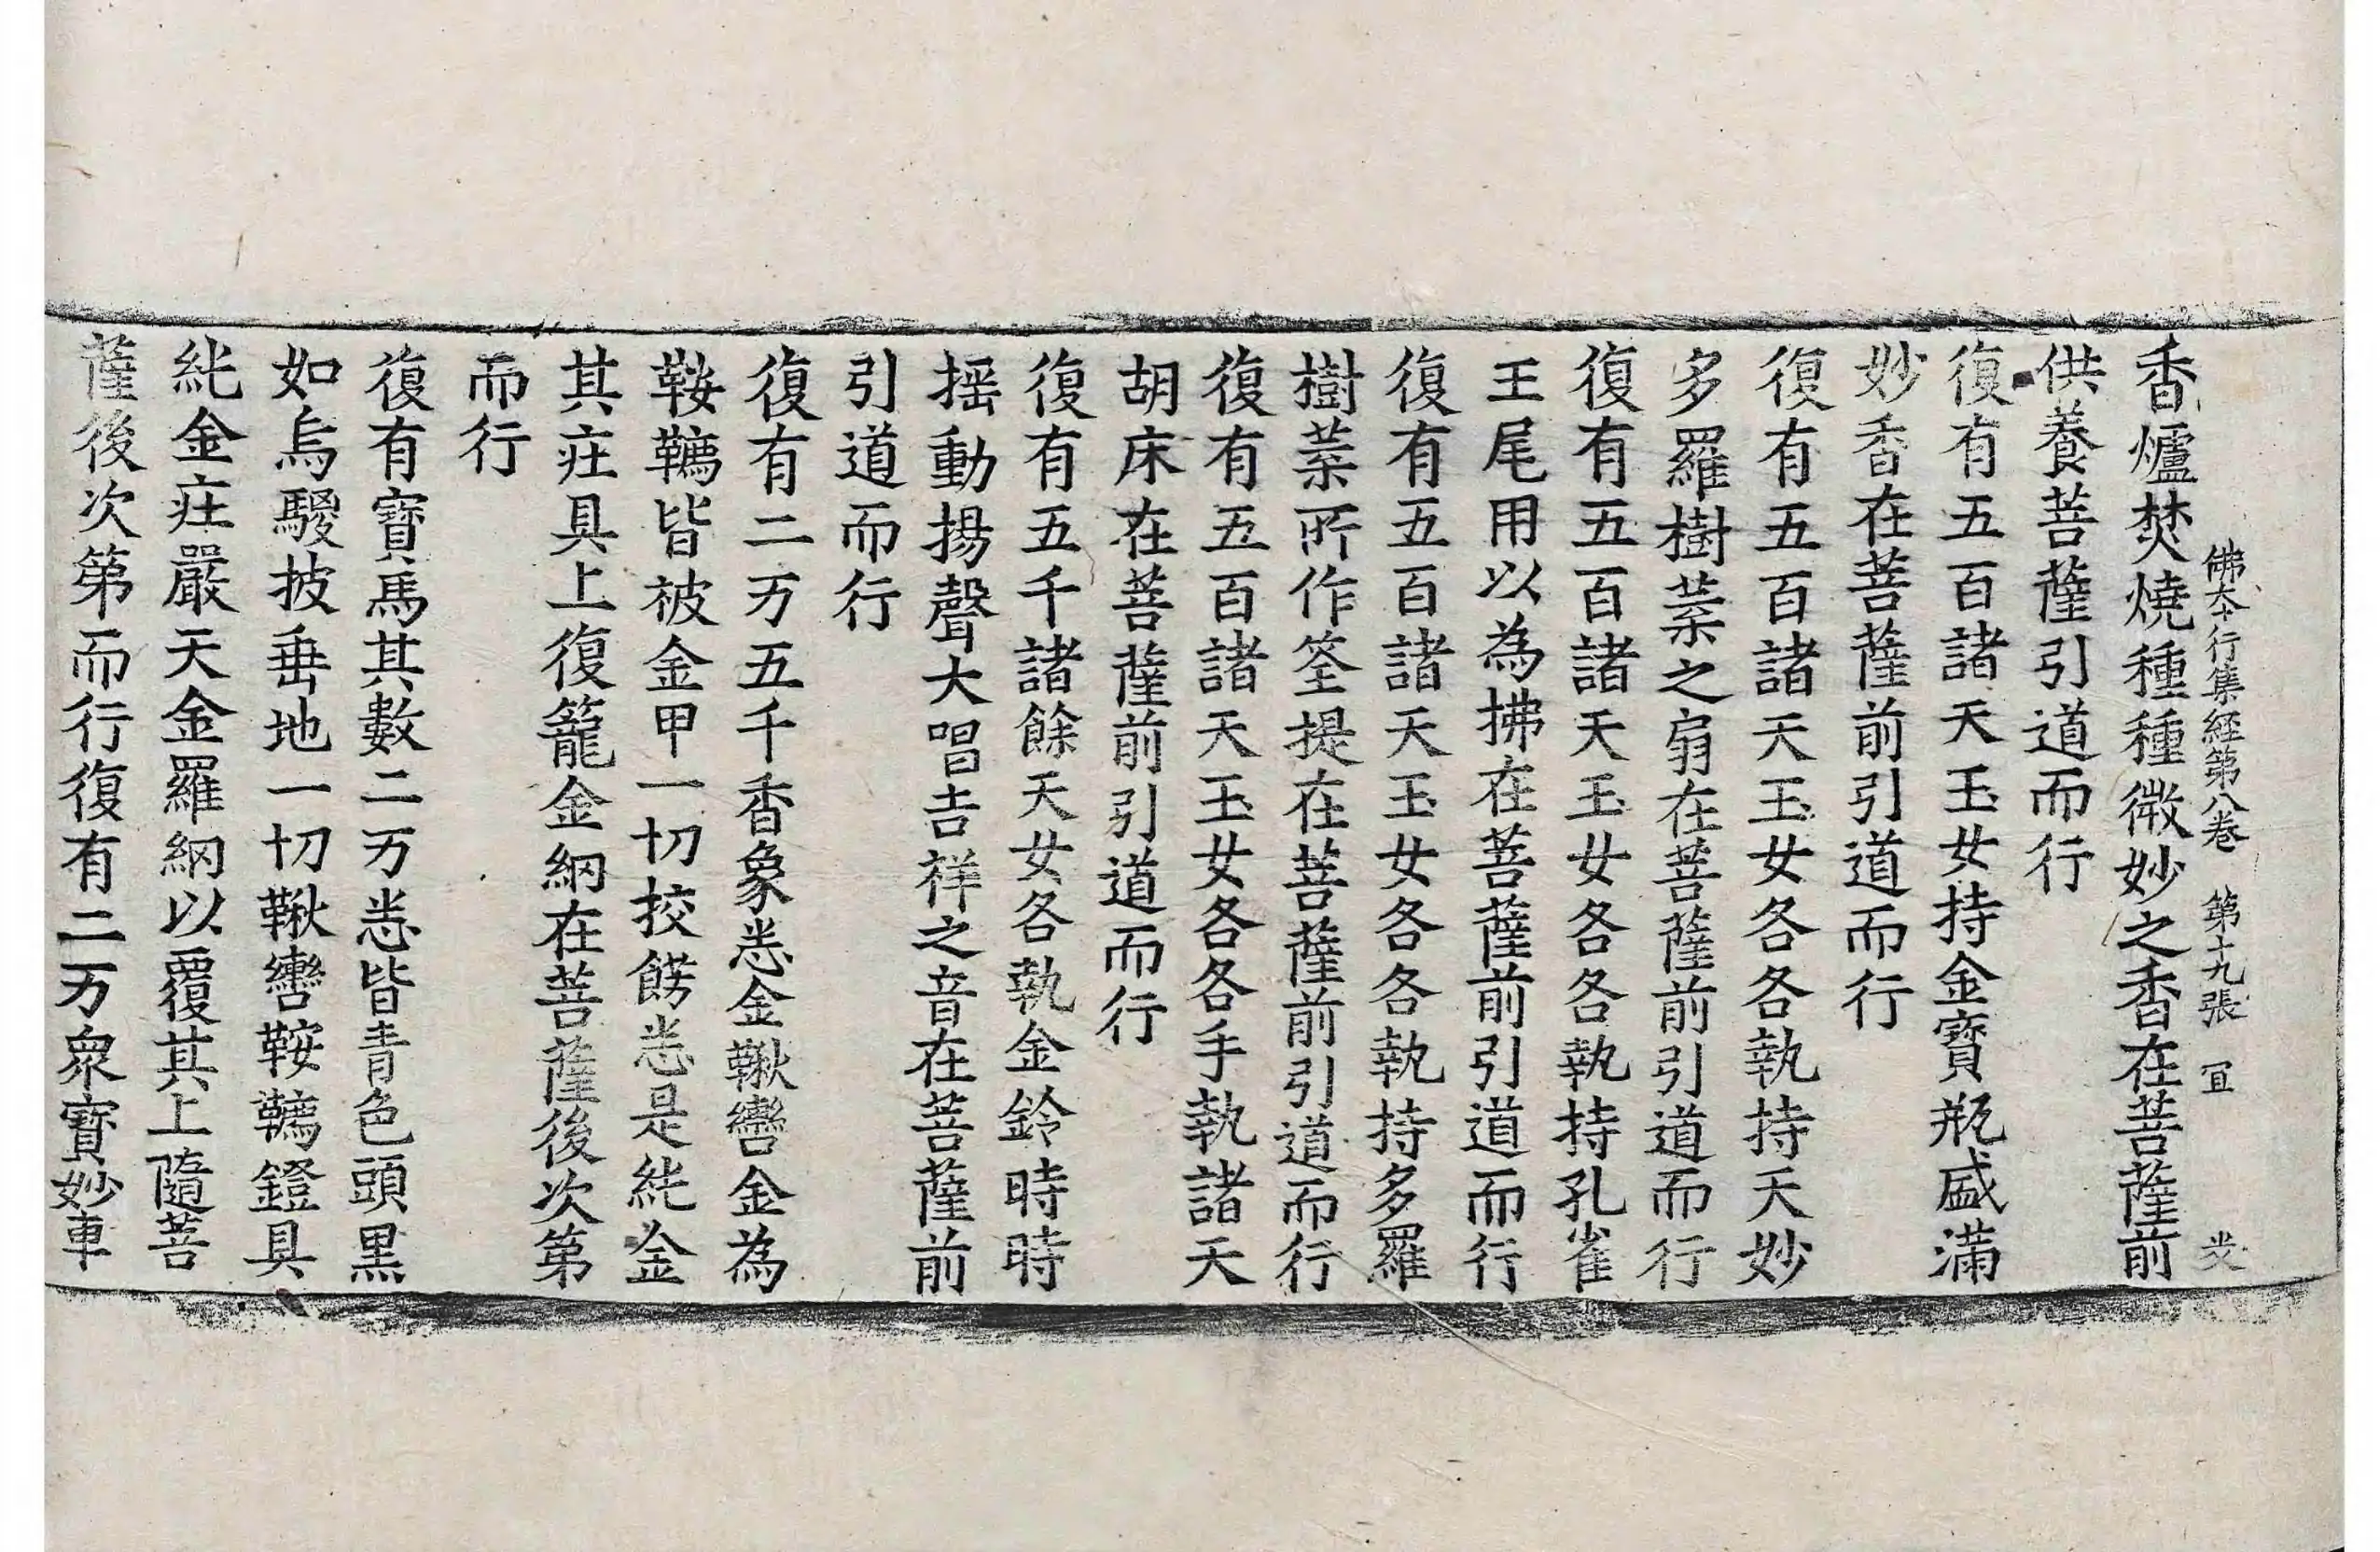 佛本行集經第八卷 第十九張 宜
香爐焚燒種種微妙之香在菩薩前
供養菩薩引道而行
復有五百諸天玉女持金寶瓶盛滿
妙香在菩薩前引道而行
復有五百諸天玉女各各執持天妙
多羅樹葉之扇在菩薩前引道而行
復有五百諸天玉女各各執持孔雀
王尾用以為拂在菩薩前引道而行
復有五百諸天玉女各各執持多羅
樹葉所作筌提在菩薩前引道而行
復有五百諸天玉女各各手執諸天
胡床在菩薩前引道而行
復有五千諸餘天女各執金鈴時時
揺動揚聲大唱吉祥之音在菩薩前
引道而行
復有二万五千香象悉金鞦轡金為
鞍韉皆被金甲一切挍餝悉是純金
其庄具上復籠金網在菩薩後次第
而行
復有寶馬其數二万悉皆青色頭黒
如烏騣披垂地一切鞦轡鞍韉鐙具
純金庄嚴天金羅網以覆其上隨菩
薩後次第而行復有二万衆寶妙車